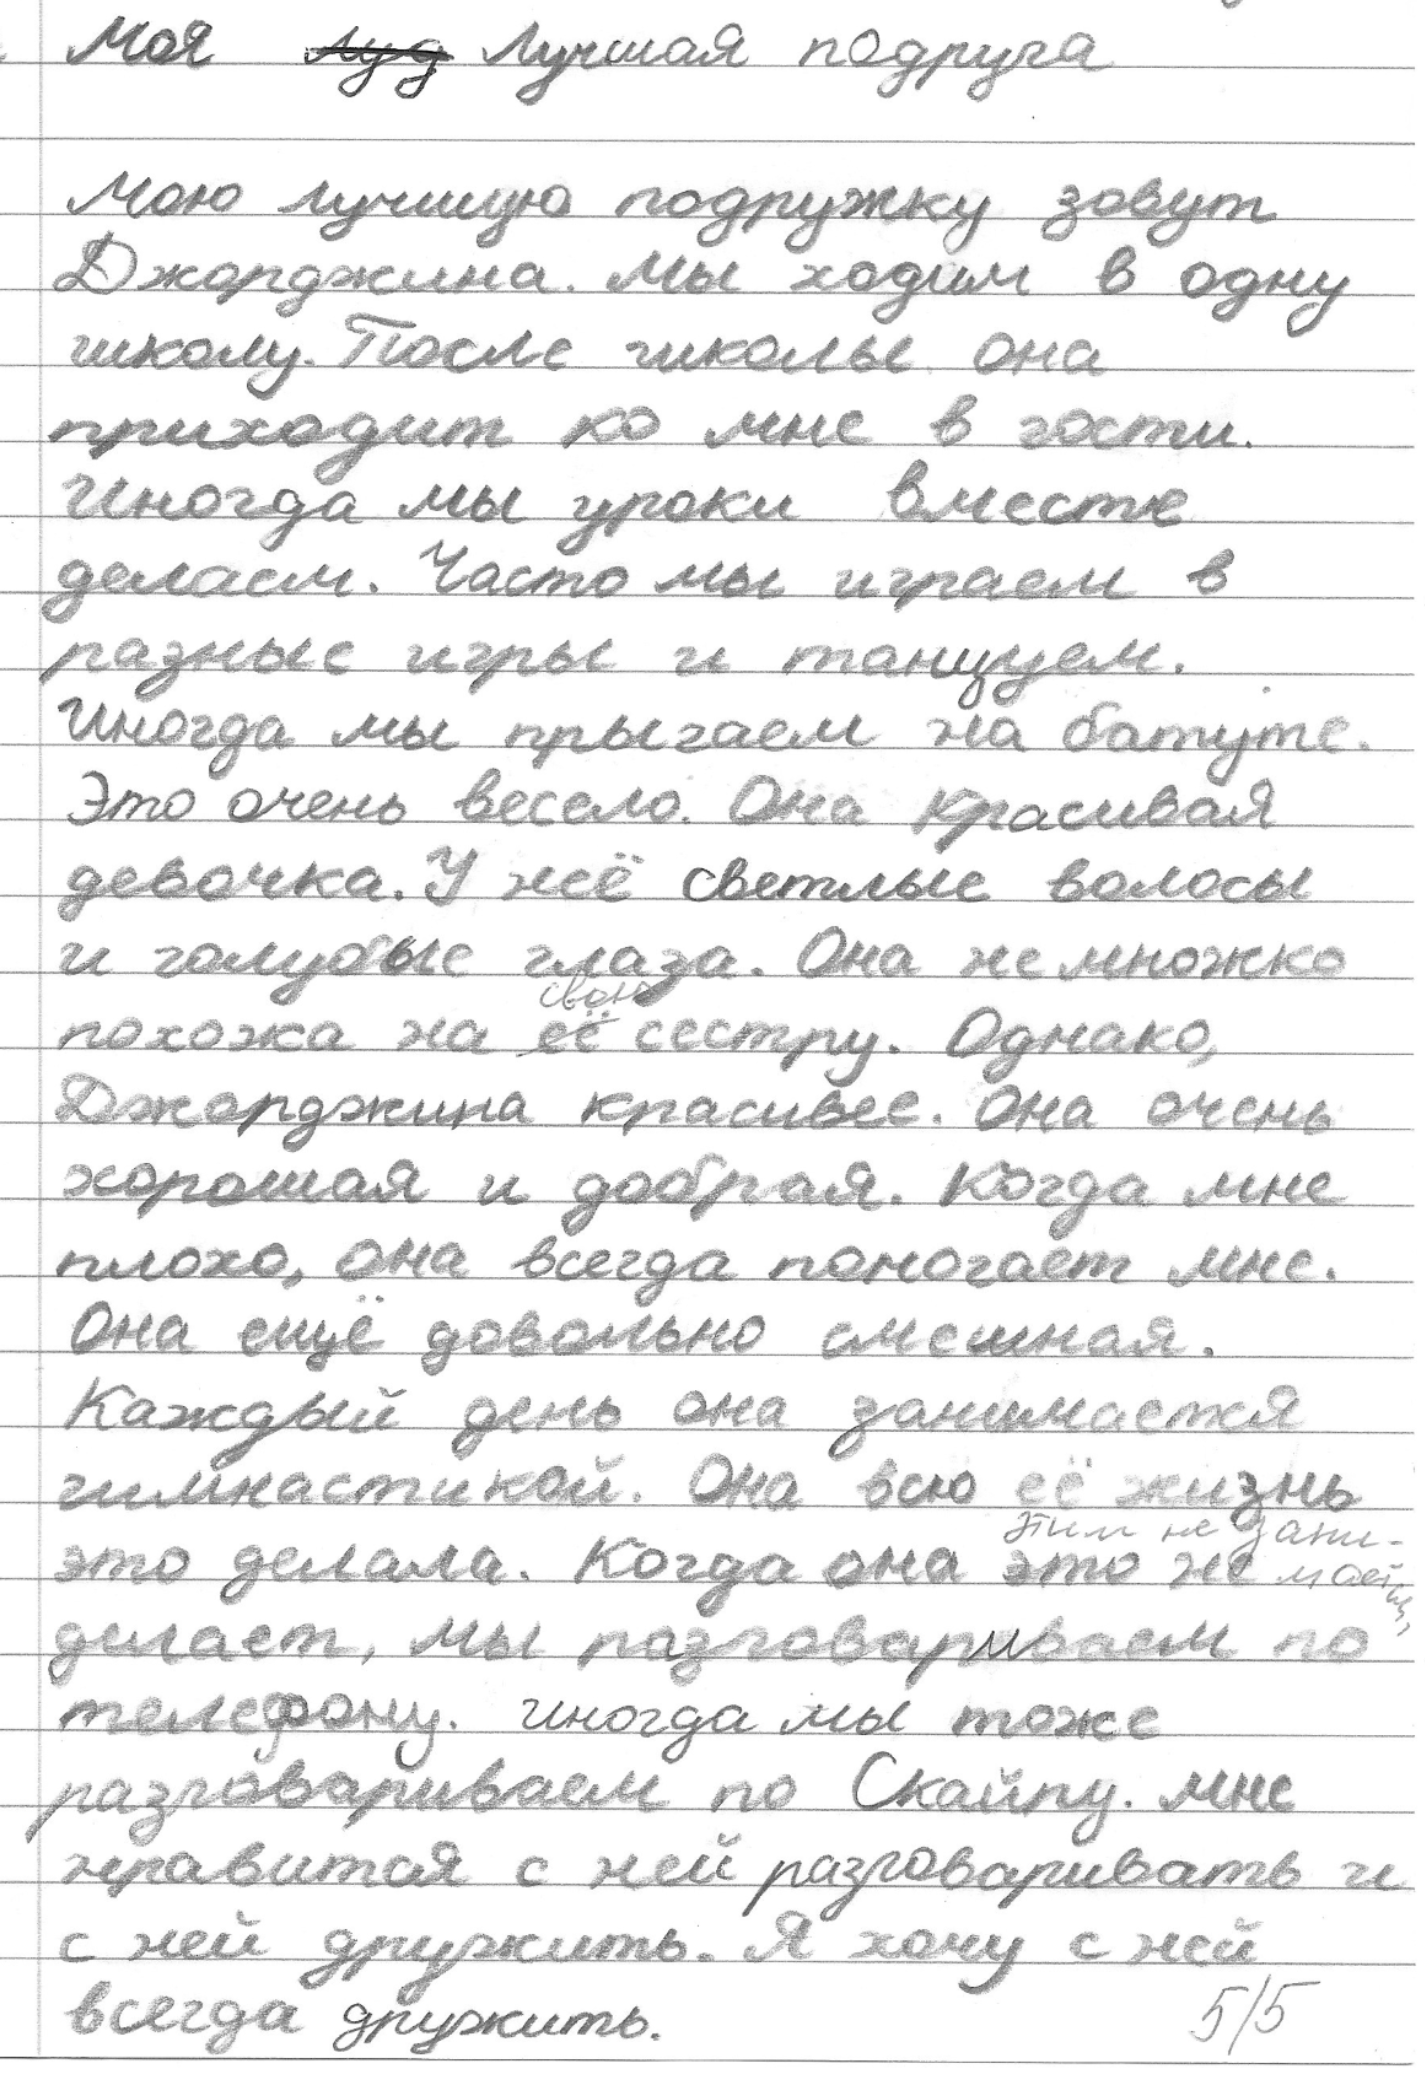 Моя луд Лучшая подруга
Мою лучшую подружку зовут
Джорджина. Мы ходим в одну
школу. После школы она
приходит ко мне в гости.
Иногда мы уроки вместе
делаем. Часто мы играем в
разные игры и танцуем.
Иногда мы прыгаем на батуте.
Это очень весело. Она красивая
девочка. У неё светлые волосы
и голубые глаза. Она немножко
свою
похожа на её сестру. Однако,
Джорджина красивее. Она очень
хорошая и добрая. Когда мне
плохо, она всегда помогает мне.
Она ещё довольно смешная.
Каждый день она занимается
гимнастикой. Она всю её жизнь
этим не зани-
это делала. Когда она это не мается,
делает, мы разговариваем по
телефону. Иногда мы тоже
разговариваем по Скайпу. Мне
нравится с ней разговаривать и
с ней дружить. Я хочу с ней
всегда дружить.
5/5